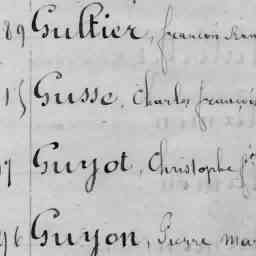 89 Gultier, françois
15 Gusse, Charles françois
Guyot, Christophe
96 Guyon, Pierre